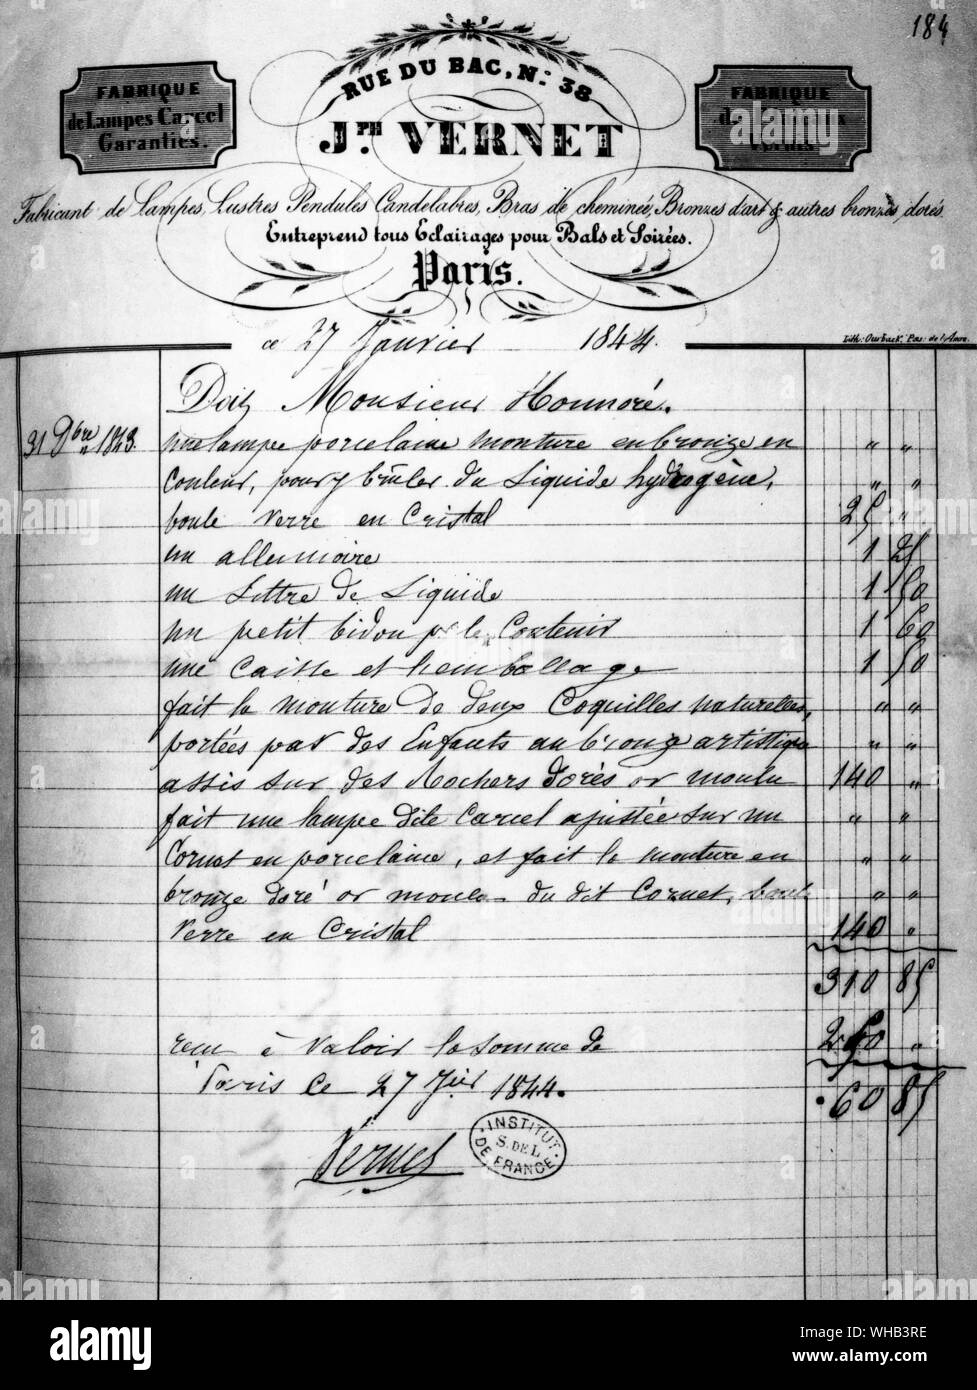 184
RUE DU BAC, No. 38
FABRIQUE
de Lampes Carcel
Garanties.
JPH VERNET
FABRIQUE
Fabricant de Lampes, Lustres Pendules Candelabres, Bras de cheminée, Bronzes d'art & autres bronzes dorés.
Entreprend tous Eclairages pour Bals et Soirées.
Paris.
ce 27 Janvier 1844.
Lith:
Doit Monsieur Honnoré.
31 9bre 1843. une lampe porcelaine monture en bronze en " "
Couleur, pour y brûler du Liquide hydrogène, " "
boule verre en Cristal 25 "
un allumoire 1 25
un Littre de Liquide 1 50
un petit bidon pr le Contenir 1 60
une Caisse et hemballage 1 50
fait la monture de deux Coquilles naturelles, " "
portées par des Enfants en bronze artistique " "
assis sur des Rochers dorés or moulu 140 "
fait une lampe dite Carcel ajustée sur un " "
Cornet en porcelaine, et fait la monture en " "
bronze doré or moulu du dit Cornet, boule " "
Verre en Cristal 140 "
310 85
reçu à Valoir la somme de "
Paris Ce 27 Jier 1844. 60 85
Vernet
INSTITUT
S. DE L.
DE FRANCE
alamy
Image ID: WHB3RE
www.alamy.com